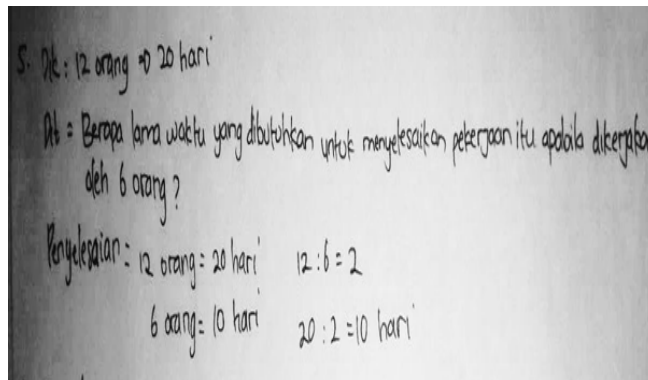 5. Dik : 12 orang => 20 hari
Dt = Berapa lama waktu yang dibutuhkan untuk menyelesaikan pekerjaan itu apabila dikerjakan
oleh 6 orang ?
Penyelesaian = 12 orang = 20 hari 12 : 6 = 2
6 orang = 10 hari 20 : 2 = 10 hari